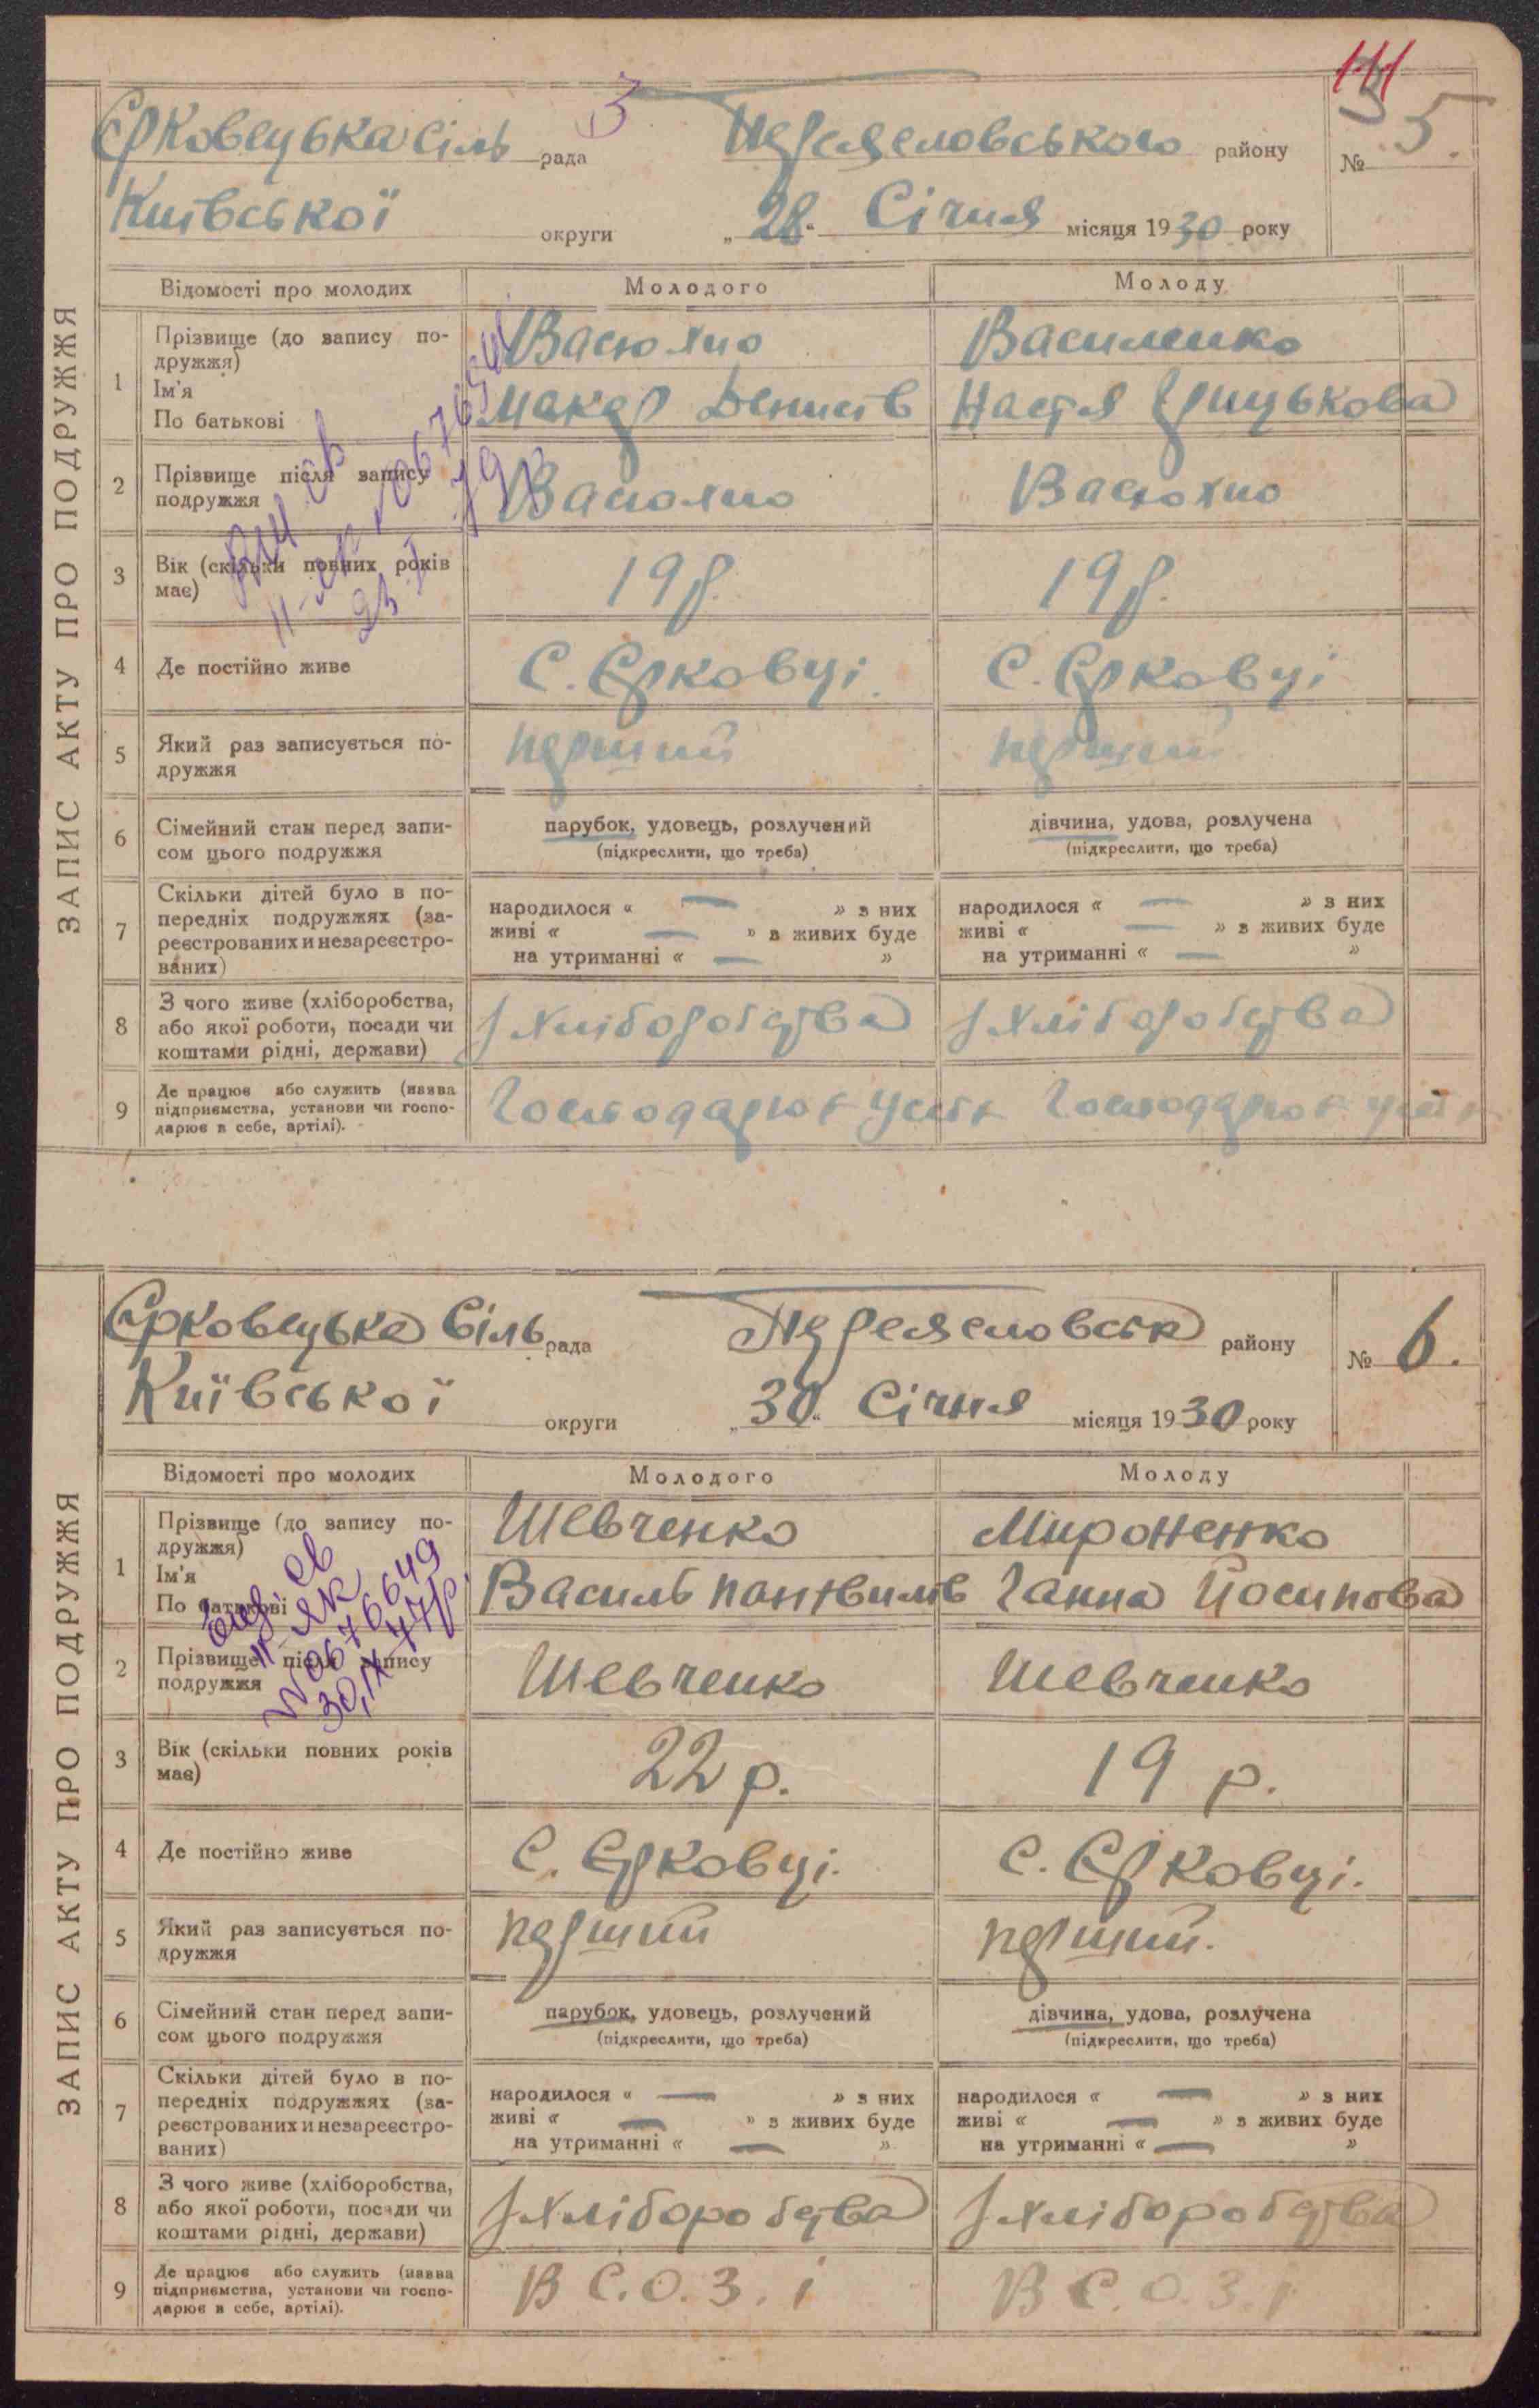 ЗАПИС АКТУ ПРО ПОДРУЖЖЯ
111
3
Єрковецька сіль рада Переяславського району № 5.
Київської округи „28“ Січня місяця 1930 року
Відомості про молодих Молодого Молоду
1 Прізвище (до запису по- Васюхно Василенко
дружжя)
Ім'я Макар Денисів Настя Грицькова
По батькові
2 Прізвище після запису Васюхно Васюхно
подружжя
3 Вік (скільки повних років 19 р. 19 р.
має)
4 Де постійно живе С. Єрковці. С. Єрковці
5 Який раз записується по- перший перший
дружжя
6 Сімейний стан перед запи- парубок, удовець, розлучений дівчина, удова, розлучена
сом цього подружжя (підкреслити, що треба) (підкреслити, що треба)
7 Скільки дітей було в по- народилося « — » з них народилося « — » з них
передніх подружжях (за- живі « — » з живих буде живі « — » з живих буде
реєстрованих и незареєстро- на утриманні « — » на утриманні « — »
ваних)
8 З чого живе (хліборобства, З хліборобства З хліборобства
або якої роботи, посади чи
коштами рідні, держави)
9 Де працює або служить (назва Господарює у себе Господарює у себе
підприємства, установи чи госпо-
дарює в себе, артілі).
ЗАПИС АКТУ ПРО ПОДРУЖЖЯ
Єрковецька Сіль рада Переяславськ району № 6.
Київської округи „30“ Січня місяця 1930 року
Відомості про молодих Молодого Молоду
1 Прізвище (до запису по- Шевченко Мироненко
дружжя)
Ім'я Василь Пантеилів Ганна Йосипова
По батькові
2 Прізвище після запису Шевченко Шевченко
подружжя
3 Вік (скільки повних років 22 р. 19 р.
має)
4 Де постійно живе С. Єрковці. С. Єрковці.
5 Який раз записується по- перший перший.
дружжя
6 Сімейний стан перед запи- парубок, удовець, розлучений дівчина, удова, розлучена
сом цього подружжя (підкреслити, що треба) (підкреслити, що треба)
7 Скільки дітей було в по- народилося « — » з них народилося « — » з них
передніх подружжях (за- живі « — » з живих буде живі « — » з живих буде
реєстрованих и незареєстро- на утриманні « — » на утриманні « — »
ваних)
8 З чого живе (хліборобства, З хліборобства З хліборобства
або якої роботи, посади чи
коштами рідні, держави)
9 Де працює або служить (назва В С.О.З.і В С.О.З.і
підприємства, установи чи госпо-
дарює в себе, артілі).